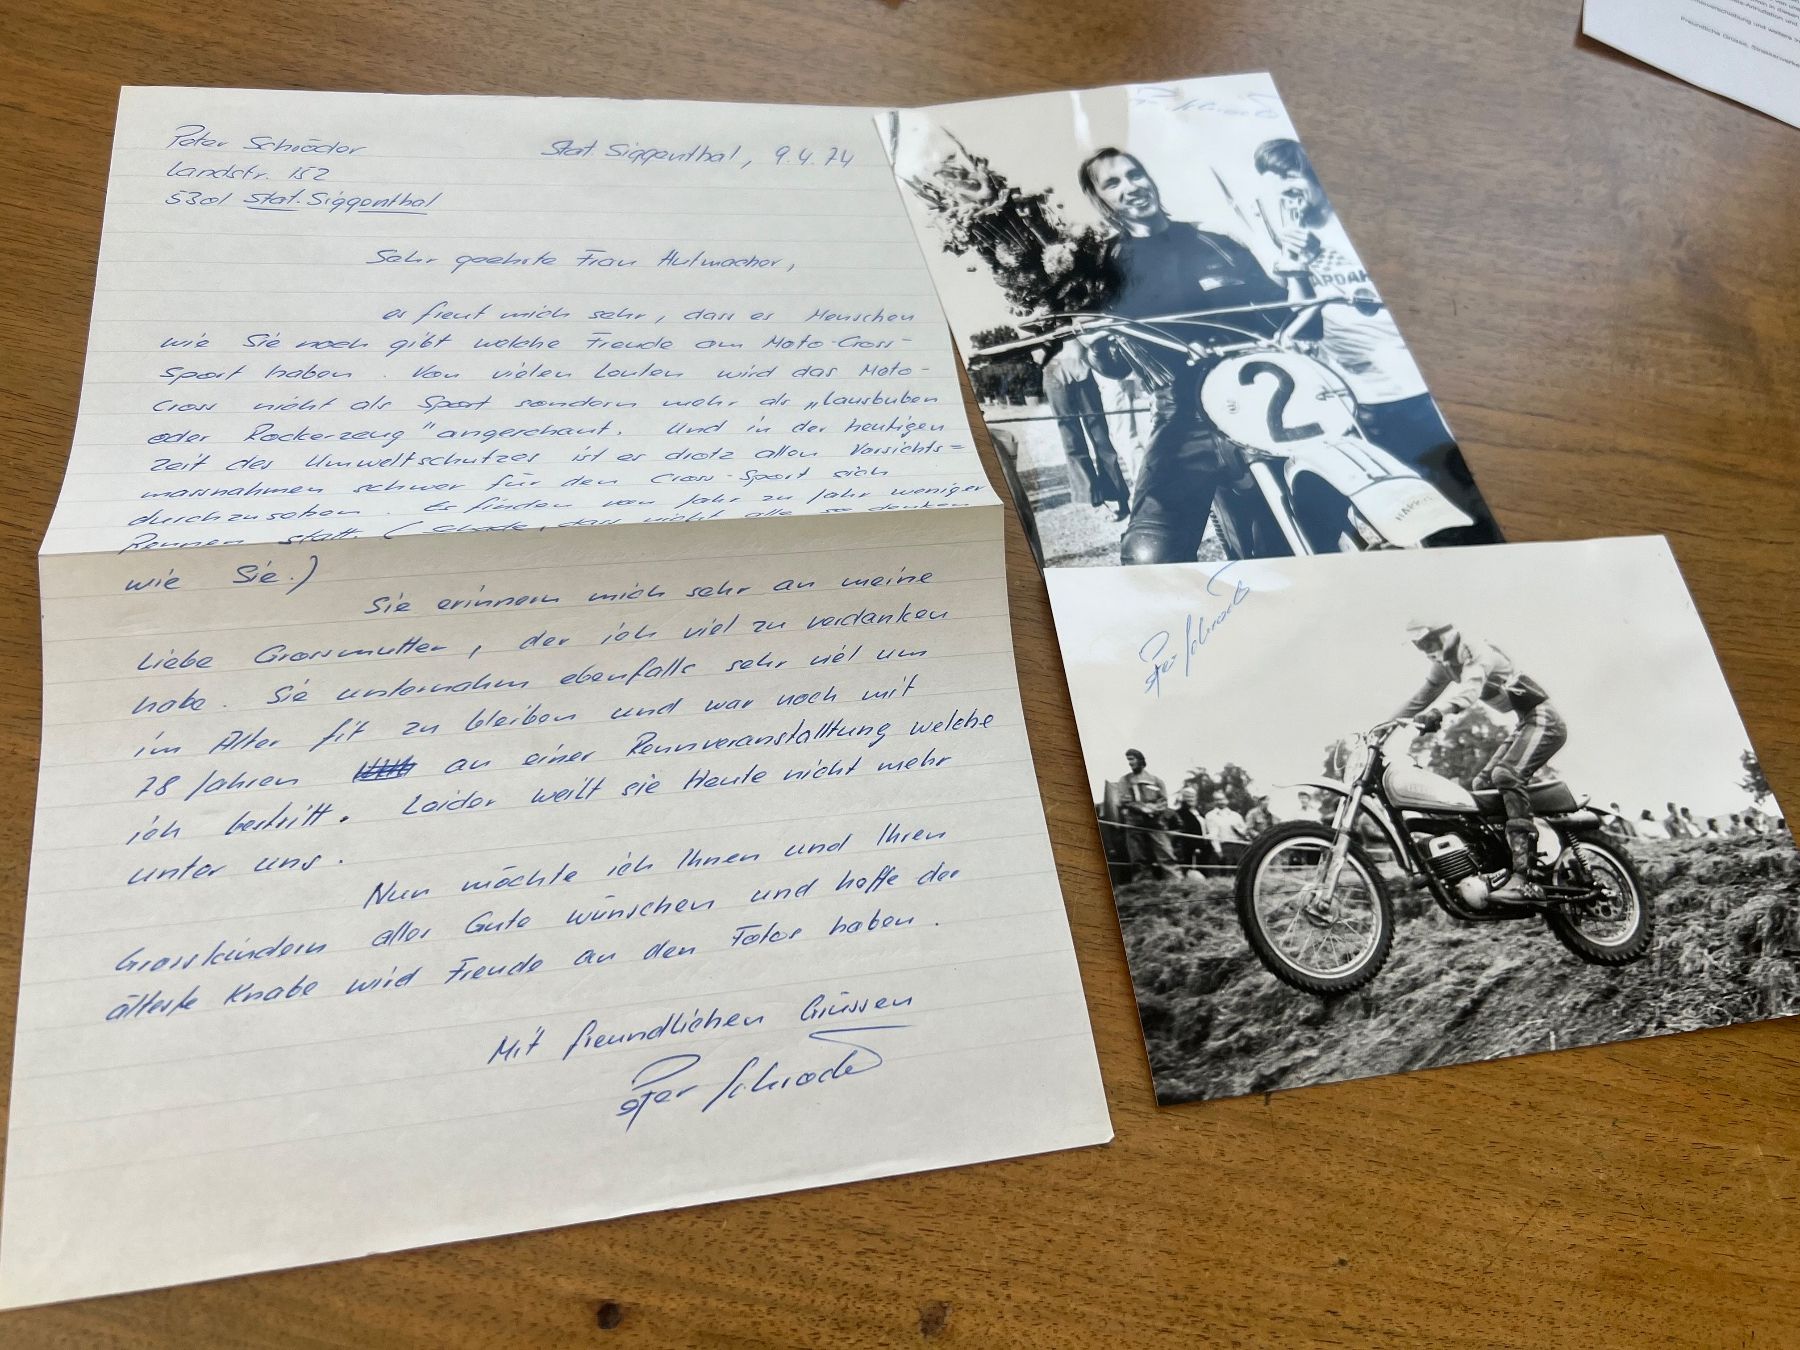 Peter Schröder
Landstr. 152
5301 Stat. Siggenthal
Stat. Siggenthal, 9.4.74
Sehr geehrte Frau Hutmacher,
es freut mich sehr, dass es Menschen
wie Sie noch gibt welche Freude am Moto-Cross-
Sport haben. Von vielen Leuten wird das Moto-
Cross nicht als Sport sondern mehr als „Lausbuben
oder Rockerzeug" angeschaut. Und in der heutigen
Zeit des Umweltschutzes ist es drotz allen Vorsichts=
massnahmen schwer für den Cross-Sport sich
durchzusetzen. Es finden von Jahr zu Jahr weniger
Rennen statt. (Schade, dass nicht alle so denken
wie Sie.)
Sie erinnern mich sehr an meine
Liebe Grossmutter, der ich viel zu verdanken
habe. Sie unternahm ebenfalls sehr viel um
im Alter fit zu bleiben und war noch mit
78 Jahren an einer Rennveranstalltung welche
ich bestritt. Leider weilt sie Heute nicht mehr
unter uns.
Nun möchte ich Ihnen und Ihren
Grosskindern alles Gute wünschen und hoffe der
älteste Knabe wird Freude an den Fotos haben.
Mit freundlichen Grüssen
Peter Schröder
Peter Schröder
2
Peter Schröder
Freundliche Grüsse,